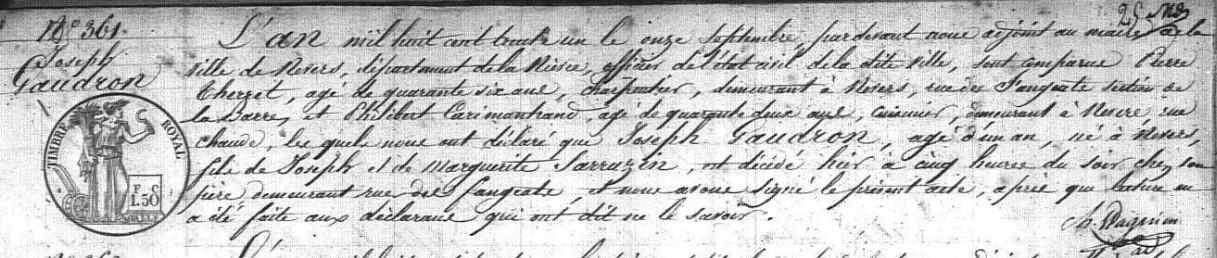 N° 361.
Joseph
Gaudron
TIMBRE ROYAL
F. C.
1.50
L'an mil huit cent trente un le onze septembre pardevant nous adjoint au maire de la
ville de Nevers, département de la Nièvre, officier de l'état civil de la dite ville, sont comparus Pierre
agé de quarante six ans, charpentier, demeurant à Nevers, rue des section de
la Barre, et Philibert agé de quarante deux ans, cuisinier, demeurant à Nevers, rue
chaude, les quels nous ont déclaré que Joseph Gaudron, agé d'un an, né à Nevers,
fils de Joseph et de Marguerite Sarrazin, est décédé hier à cinq heures du soir chez son
père demeurant rue des, et nous avons signé le présent acte, après que lecture en
a été faite aux déclarans qui ont dit ne le savoir.